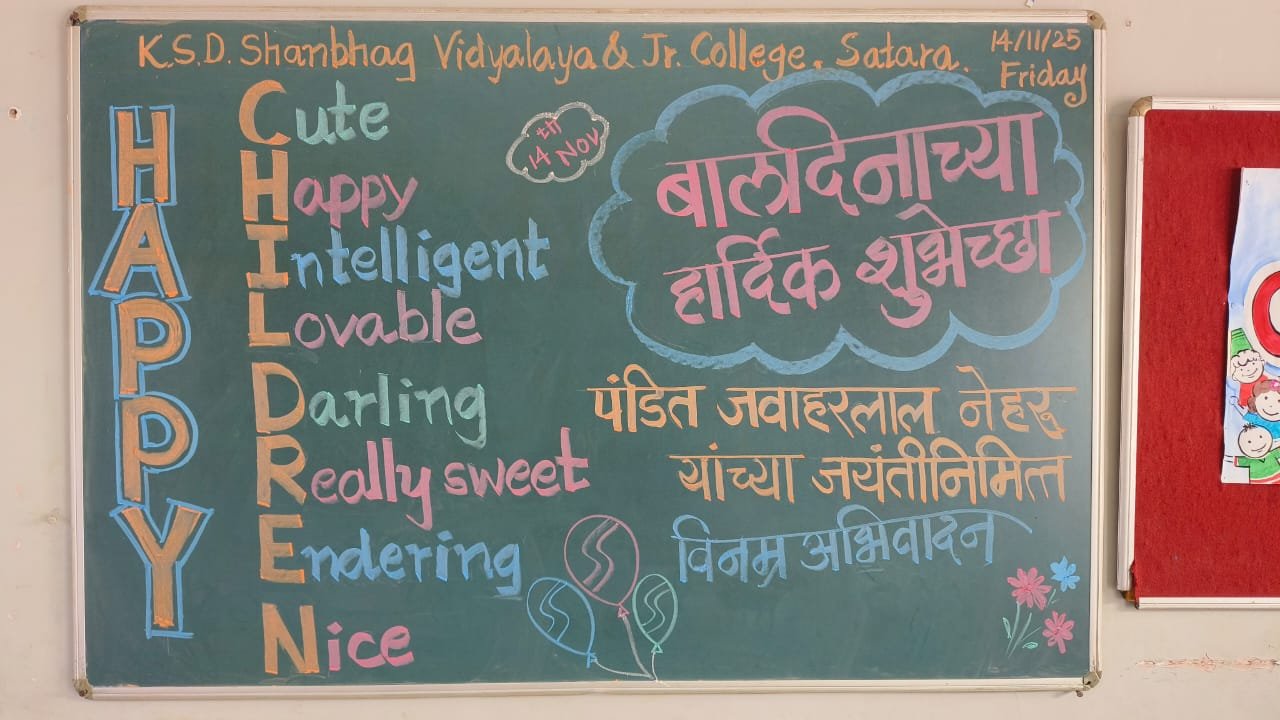 K.S.D. Shanbhag Vidyalaya & Jr. College, Satara.
14/11/25
Friday
HAPPY
Cute
Happy
Intelligent
Lovable
Darling
Really sweet
Endering
Nice
14th Nov
बालदिनाच्या
हार्दिक शुभेच्छा
पंडित जवाहरलाल नेहरू
यांच्या जयंतीनिमित्त
विनम्र अभिवादन